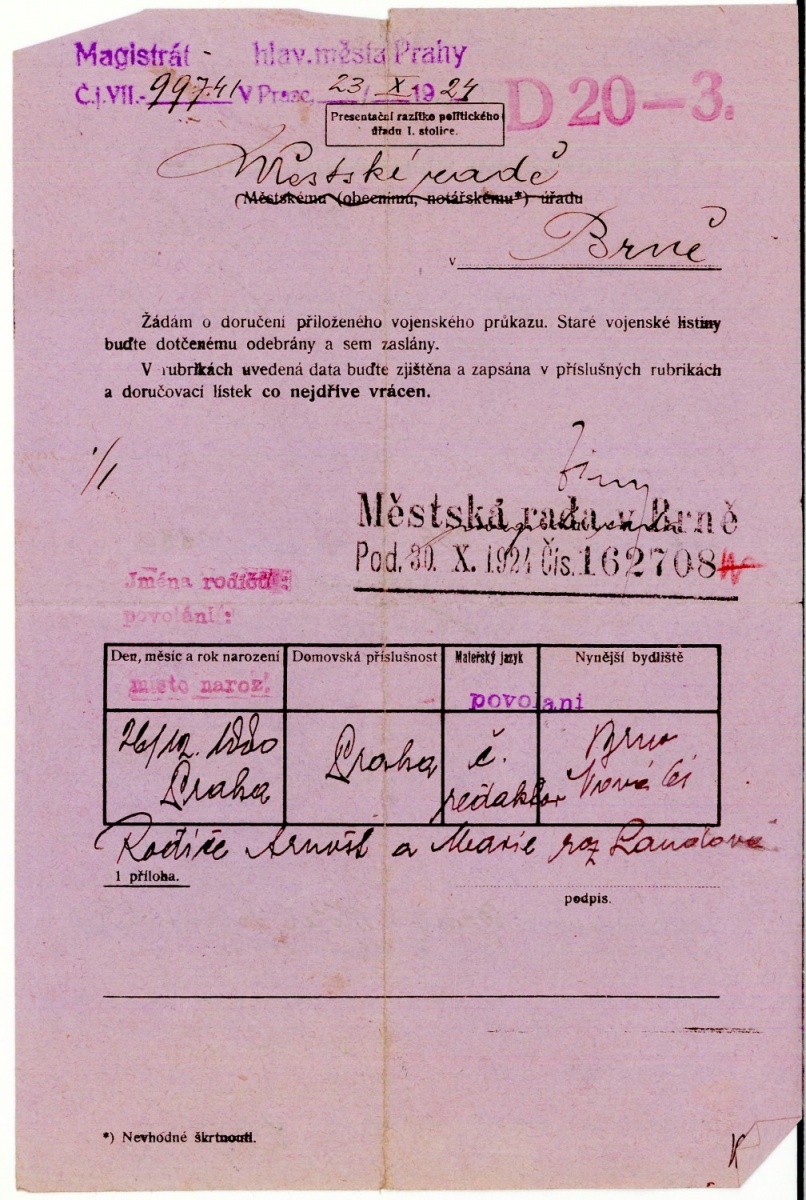 Magistrát - hlav. města Prahy
Č.j. VII.- 99741 / V Praze, 23 / X 1924
D 20-3.
Presentační razítko politického
úřadu I. stolice.
Městské radě
(Městskému (obecnímu, notářskému*) úřadu
v Brně
Žádám o doručení přiloženého vojenského průkazu. Staré vojenské listiny
buďte dotčenému odebrány a sem zaslány.
V rubrikách uvedená data buďte zjištěna a zapsána v příslušných rubrikách
a doručovací lístek co nejdříve vrácen.
1/1
Městská rada v Brně
Pod. 30. X. 1924 Čís. 162708
Jména rodičů:
povolání:
Den, měsíc a rok narození Domovská příslušnost Mateřský jazyk Nynější bydliště
místo naroz. povolani
26/12. 1880 Praha č. Brno
Praha redaktor Nová
Rodiče Arnošt a Marie roz
1 příloha.
podpis.
*) Nevhodné škrtnouti.